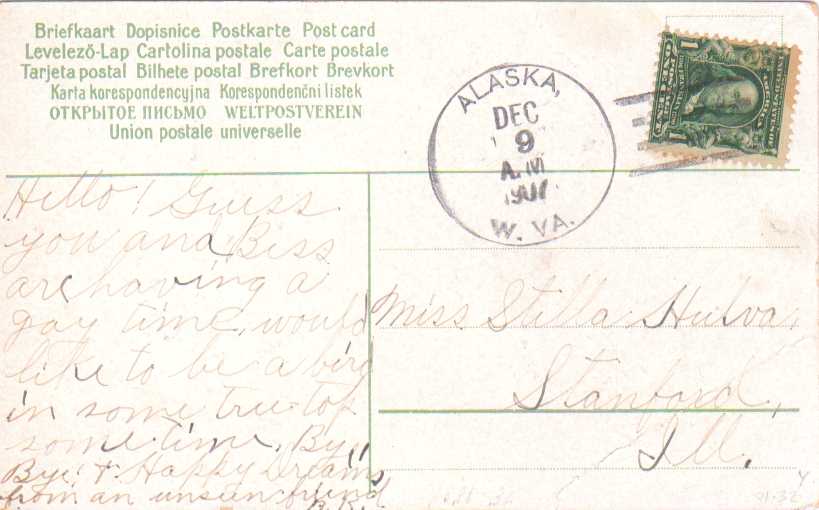 Briefkaart Dopisnice Postkarte Post card
Levelező-Lap Cartolina postale Carte postale
Tarjeta postal Bilhete postal Brefkort Brevkort
Karta korespondencyjna Korespondenční listek
ОТКРЫТОЕ ПИСЬМО WELTPOSTVEREIN
Union postale universelle
ALASKA,
DEC
9
A.M
1907
W. VA.
1 1
Hello! Guess
you and Bess
are having a
gay time, would
like to be a bird
in some tree-top
some time. By,
Bye! & Happy Dreams
from an unseen friend
Miss Stella Hulva,
Stanford,
Ill.